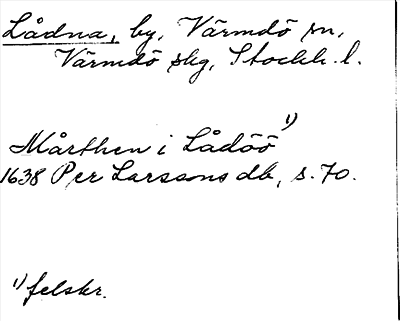 Lådna, by, Värmdö sn,
Värmdö skg, Stockh. l.
Mårthen i Lådöö 1)
1638 Per Larssons db, s. 70.
1) felskr.